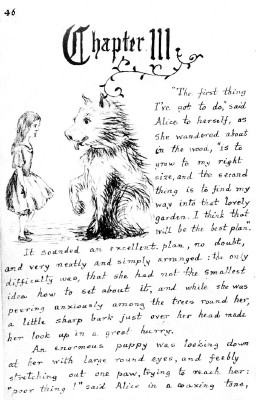 46
Chapter III
"The first thing
I've got to do," said
Alice to herself, as
she wandered about
in the wood, "is to
grow to my right
size, and the second
thing is to find my
way into that lovely
garden. I think that
will be the best plan."
It sounded an excellent plan, no doubt,
and very neatly and simply arranged: the only
difficulty was, that she had not the smallest
idea how to set about it, and while she was
peering anxiously among the trees round her,
a little sharp bark just over her head made
her look up in a great hurry.
An enormous puppy was looking down
at her with large round eyes, and feebly
stretching out one paw, trying to reach her:
"poor thing!" said Alice in a coaxing tone,